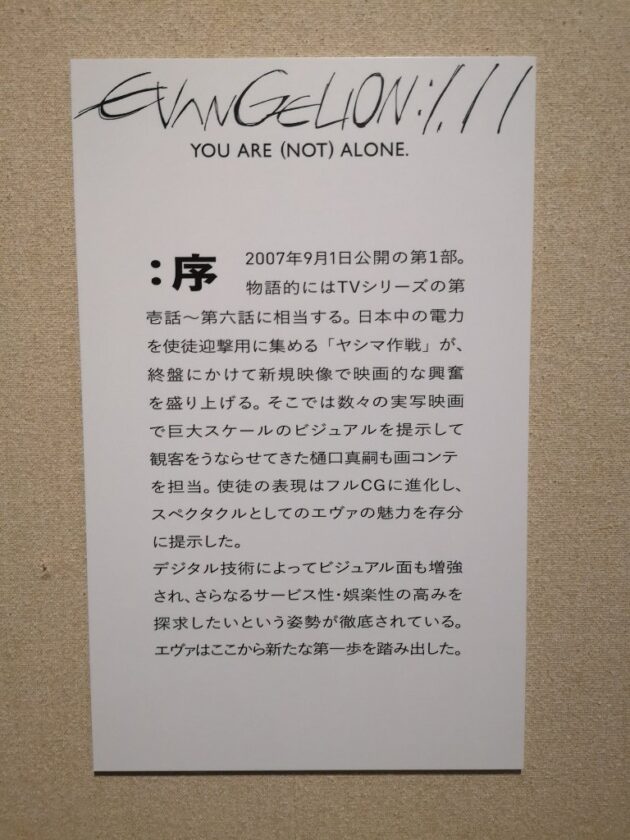 EVANGELION:1.11
YOU ARE (NOT) ALONE.
:序
2007年9月1日公開の第1部。
物語的にはTVシリーズの第
壱話～第六話に相当する。日本中の電力
を使徒迎撃用に集める「ヤシマ作戦」が、
終盤にかけて新規映像で映画的な興奮
を盛り上げる。そこでは数々の実写映画
で巨大スケールのビジュアルを提示して
観客をうならせてきた樋口真嗣も画コンテ
を担当。使徒の表現はフルCGに進化し、
スペクタクルとしてのエヴァの魅力を存分
に提示した。
デジタル技術によってビジュアル面も増強
され、さらなるサービス性・娯楽性の高みを
探求したいという姿勢が徹底されている。
エヴァはここから新たな第一歩を踏み出した。